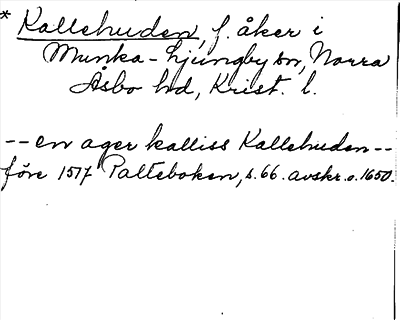 * Kallehuden, f. åker i
Munka-Ljungby sn, Norra
Åsbo hd, Krist. l.
-- en ager kalliss Kallehuden --
före 1517 Palteboken, s. 66. avskr. o. 1650.